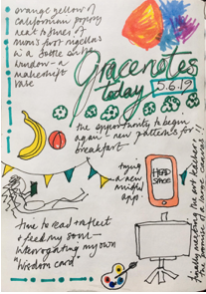 orange yellow of
californian poppy
next to fires of
mum's first nigellas
in a bottle on the
window - a
makeshift
vase
Gracenotes
today
5.6.19
the opportunity to begin
again, new patterns for
breakfast -
trying
a new
mindful
app.
HEAD
SPACE
time to read + reflect
+ feed my soul -
interrogating my own
"wisdom card"
finally meeting the art teacher!!
the promise of a large canvas